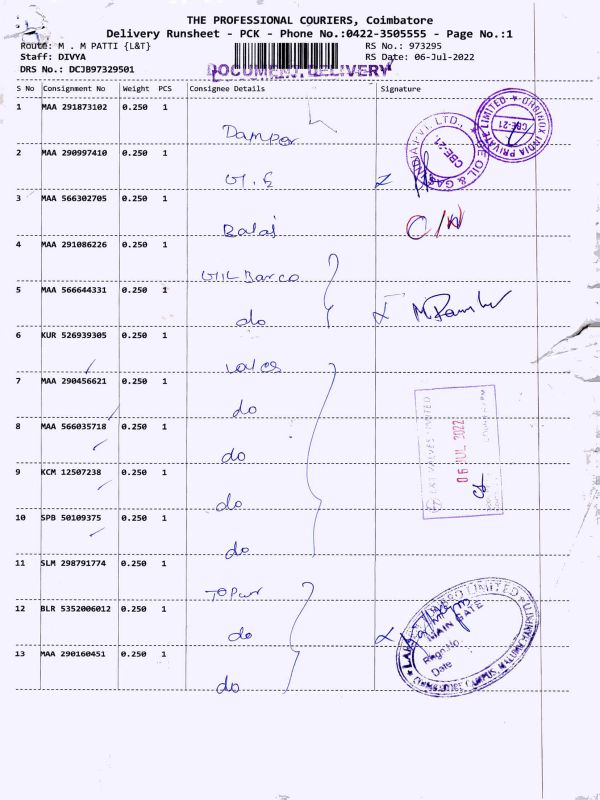 THE PROFESSIONAL COURIERS, Coimbatore
Delivery Runsheet - PCK - Phone No.:0422-3505555 - Page No.:1
Route: M . M PATTI {L&T}
RS No.: 973295
Staff: DIVYA
RS Date: 06-Jul-2022
DRS No.: DCJB97329501
DOCUMENT DELIVERY
S No Consignment No Weight PCS Consignee Details Signature
1 MAA 291873102 0.250 1
2 MAA 290997410 0.250 1
3 MAA 566302705 0.250 1
Balaj
4 MAA 291086226 0.250 1
Gil Barco
5 MAA 566644331 0.250 1
do
6 KUR 526939305 0.250 1
7 MAA 290456621 0.250 1
do
8 MAA 566035718 0.250 1
do
9 KCM 12507238 0.250 1
do
10 SPB 50109375 0.250 1
do
11 SLM 298791774 0.250 1
12 BLR 5352006012 0.250 1
do
13 MAA 290160451 0.250 1
do
ORBINOX INDIA PRIVATE LIMITED
CBE-21
INDIA PVT. LTD.,
OIL & GAS
CBE-21
L&T VALVES LIMITED
06 JUL 2022
LIMITED
MAIN GATE
Regn.No
Date
COIMBATORE CAMPUS, MALUMICHAMPATTI